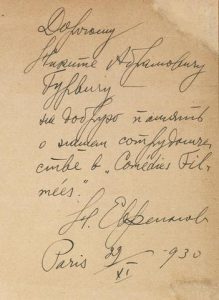 Дорогому
Никите Абрамовичу
Гурвичу
на добрую память
о нашем сотрудниче-
стве в „Comédies Fil-
mées."
Н. Евреинов
Paris 29/XI 1930